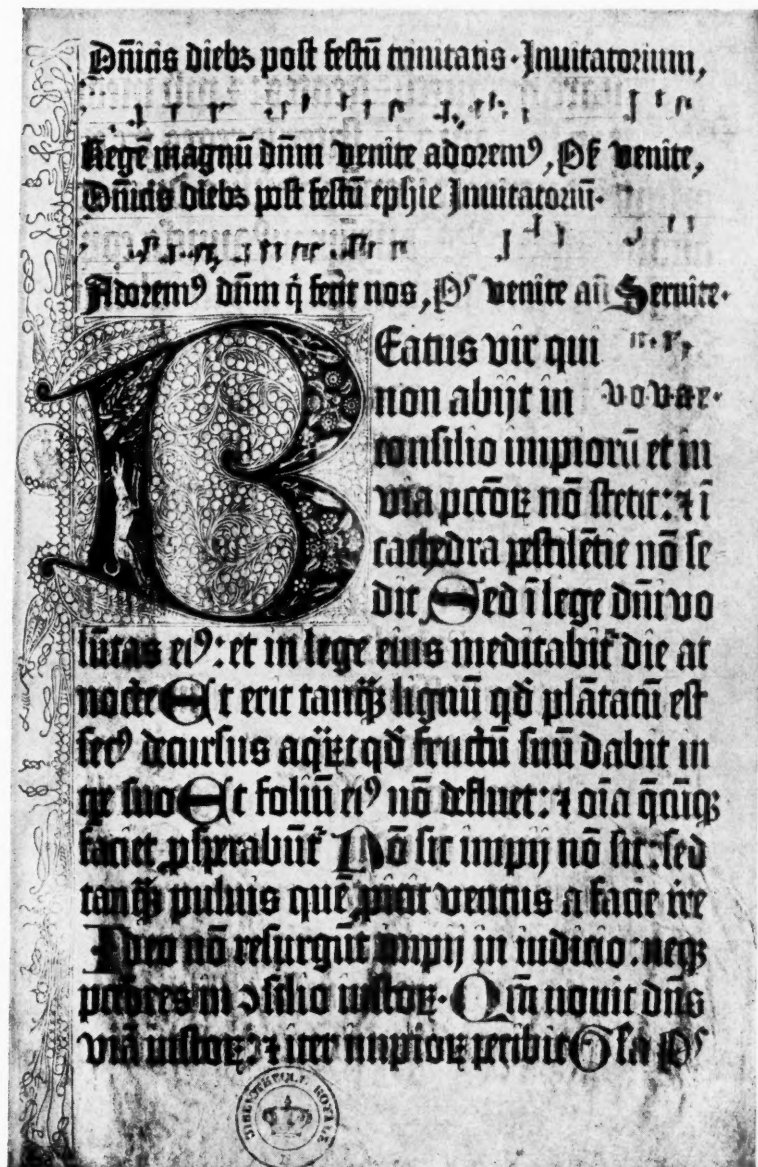 Dn̄icis diebꝫ post festū trinitatis · Inuitatorium,
Regē magnū dn̄m venite adoremꝰ, Ps̄ venite,
Dn̄icis diebꝫ post festū ephīe Inuitatoriū·
Adoremꝰ dn̄m q̄ fecit nos, Ps̄ venite añ Seruite·
BEatus vir qui
non abijt in e v o v a e ·
consilio impiorū et in
via pccōꝝ nō stetit: ⁊ ī
cathedra pestilētie nō se
dit Sed ī lege dn̄i vo
lūtas eiꝰ: et in lege eius meditabit᷑ die ac
nocte Et erit tanqꝫ lignū qd̄ plātatū est
secꝰ decursus aqꝝ: qd̄ fructū suū dabit in
tp̄e suo Et foliū eiꝰ nō defluet: ⁊ oīa q̄cūqꝫ
faciet ꝓsperabūt᷑ Nō sic impij nō sic: sed
tanqꝫ puluis quē ꝓicit ventus a facie t̄re
Ideo nō resurgūt impij in iudicio: neqꝫ
pctōres in ↄsilio iustoꝝ· Qm̄ nouit dn̄s
viā iustoꝝ: ⁊ iter impioꝝ peribit Gl̄a Ps̄